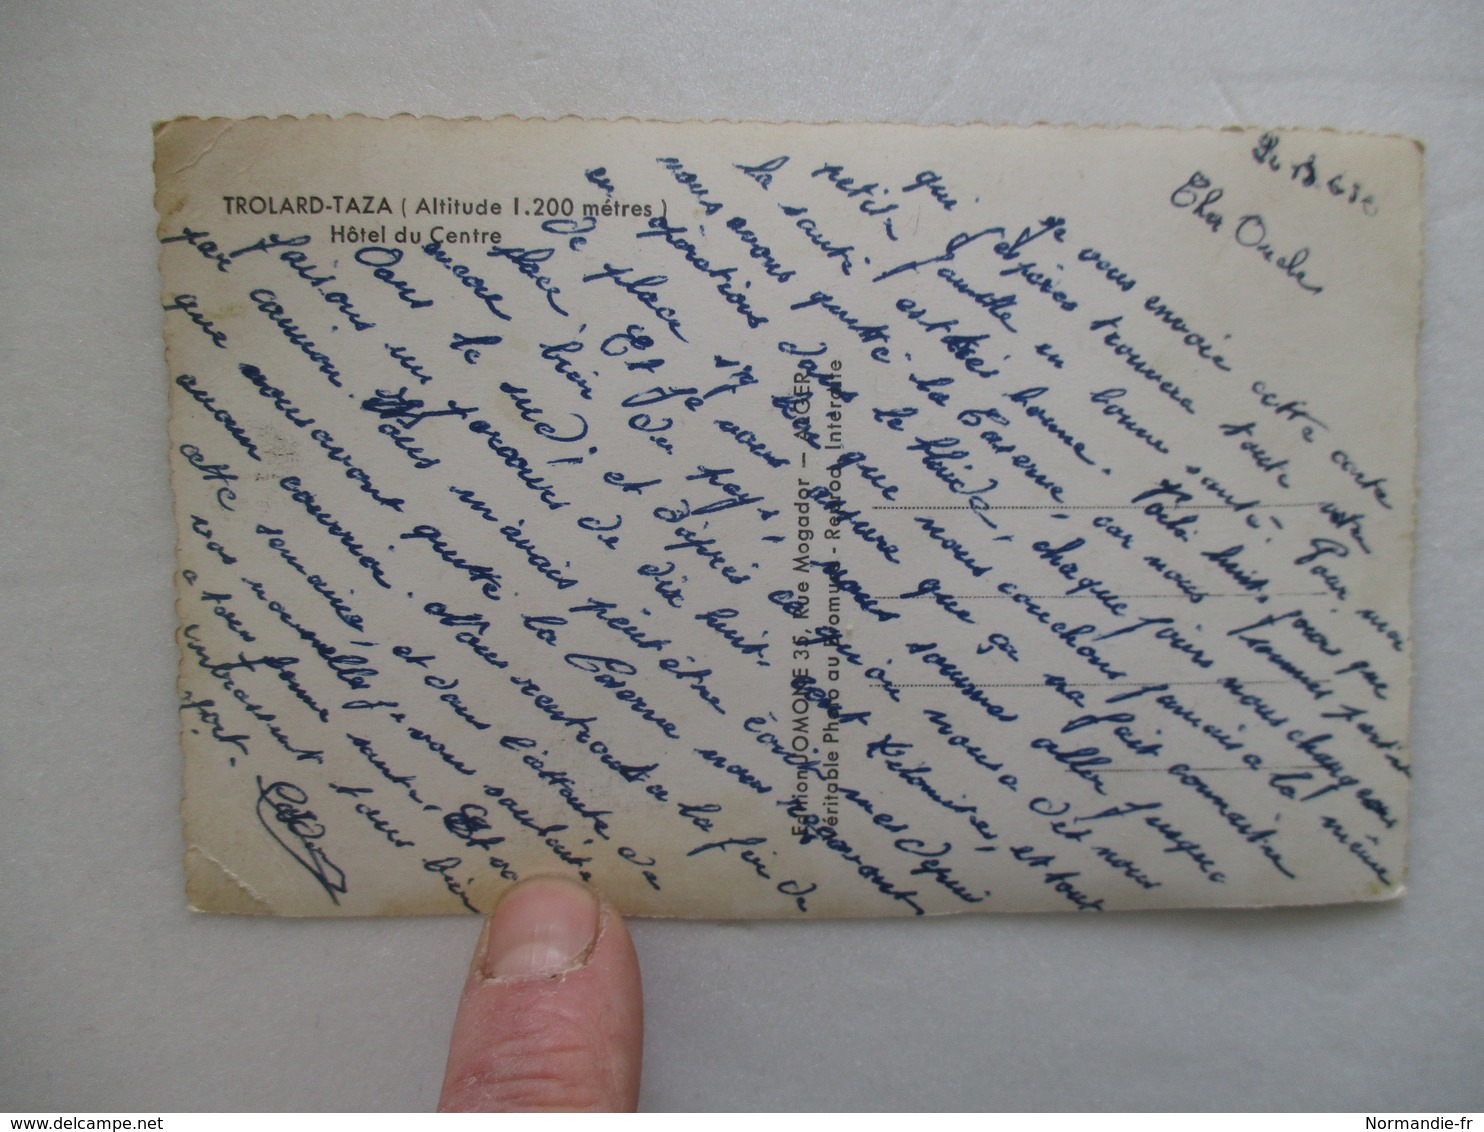 TROLARD-TAZA ( Altitude 1.200 métres )
Hôtel du Centre
Edition JOMONE 35, Rue Mogador — ALGER
Véritable Photo au Bromure - Reprod. Interdite
Cher Oncle
Je vous envoie cette carte
qui j'espères trouvera toute votre
petite famille en bonne santé. Pour moi
la santé est très bonne. Voilà huit jours que
nous avons quitté la Caserne, car nous sommes parti
en opérations dans le bled, chaque jours nous changeons
de place, bien que nous couchons jamais a la même
place. Et je vous assure que ça me fait connaître
du pays, nous sommes aller jusque
encore et d'après ce qu'on nous a dit nous
Dans le sud,
faisons un parcours de dix huit cent kilomètres, et tout
par camion. Vous m'avais peut être écrit mes depuis
que nous avont quitté la Caserne nous recevront
aucun courrier. Nous rentront a la fin de
cette semaine, et dans l'attente de
vos nouvelles je vous souhaite
a tous bonne santé, Et vous
embrassent tous bien
fort.
Normandie-fr